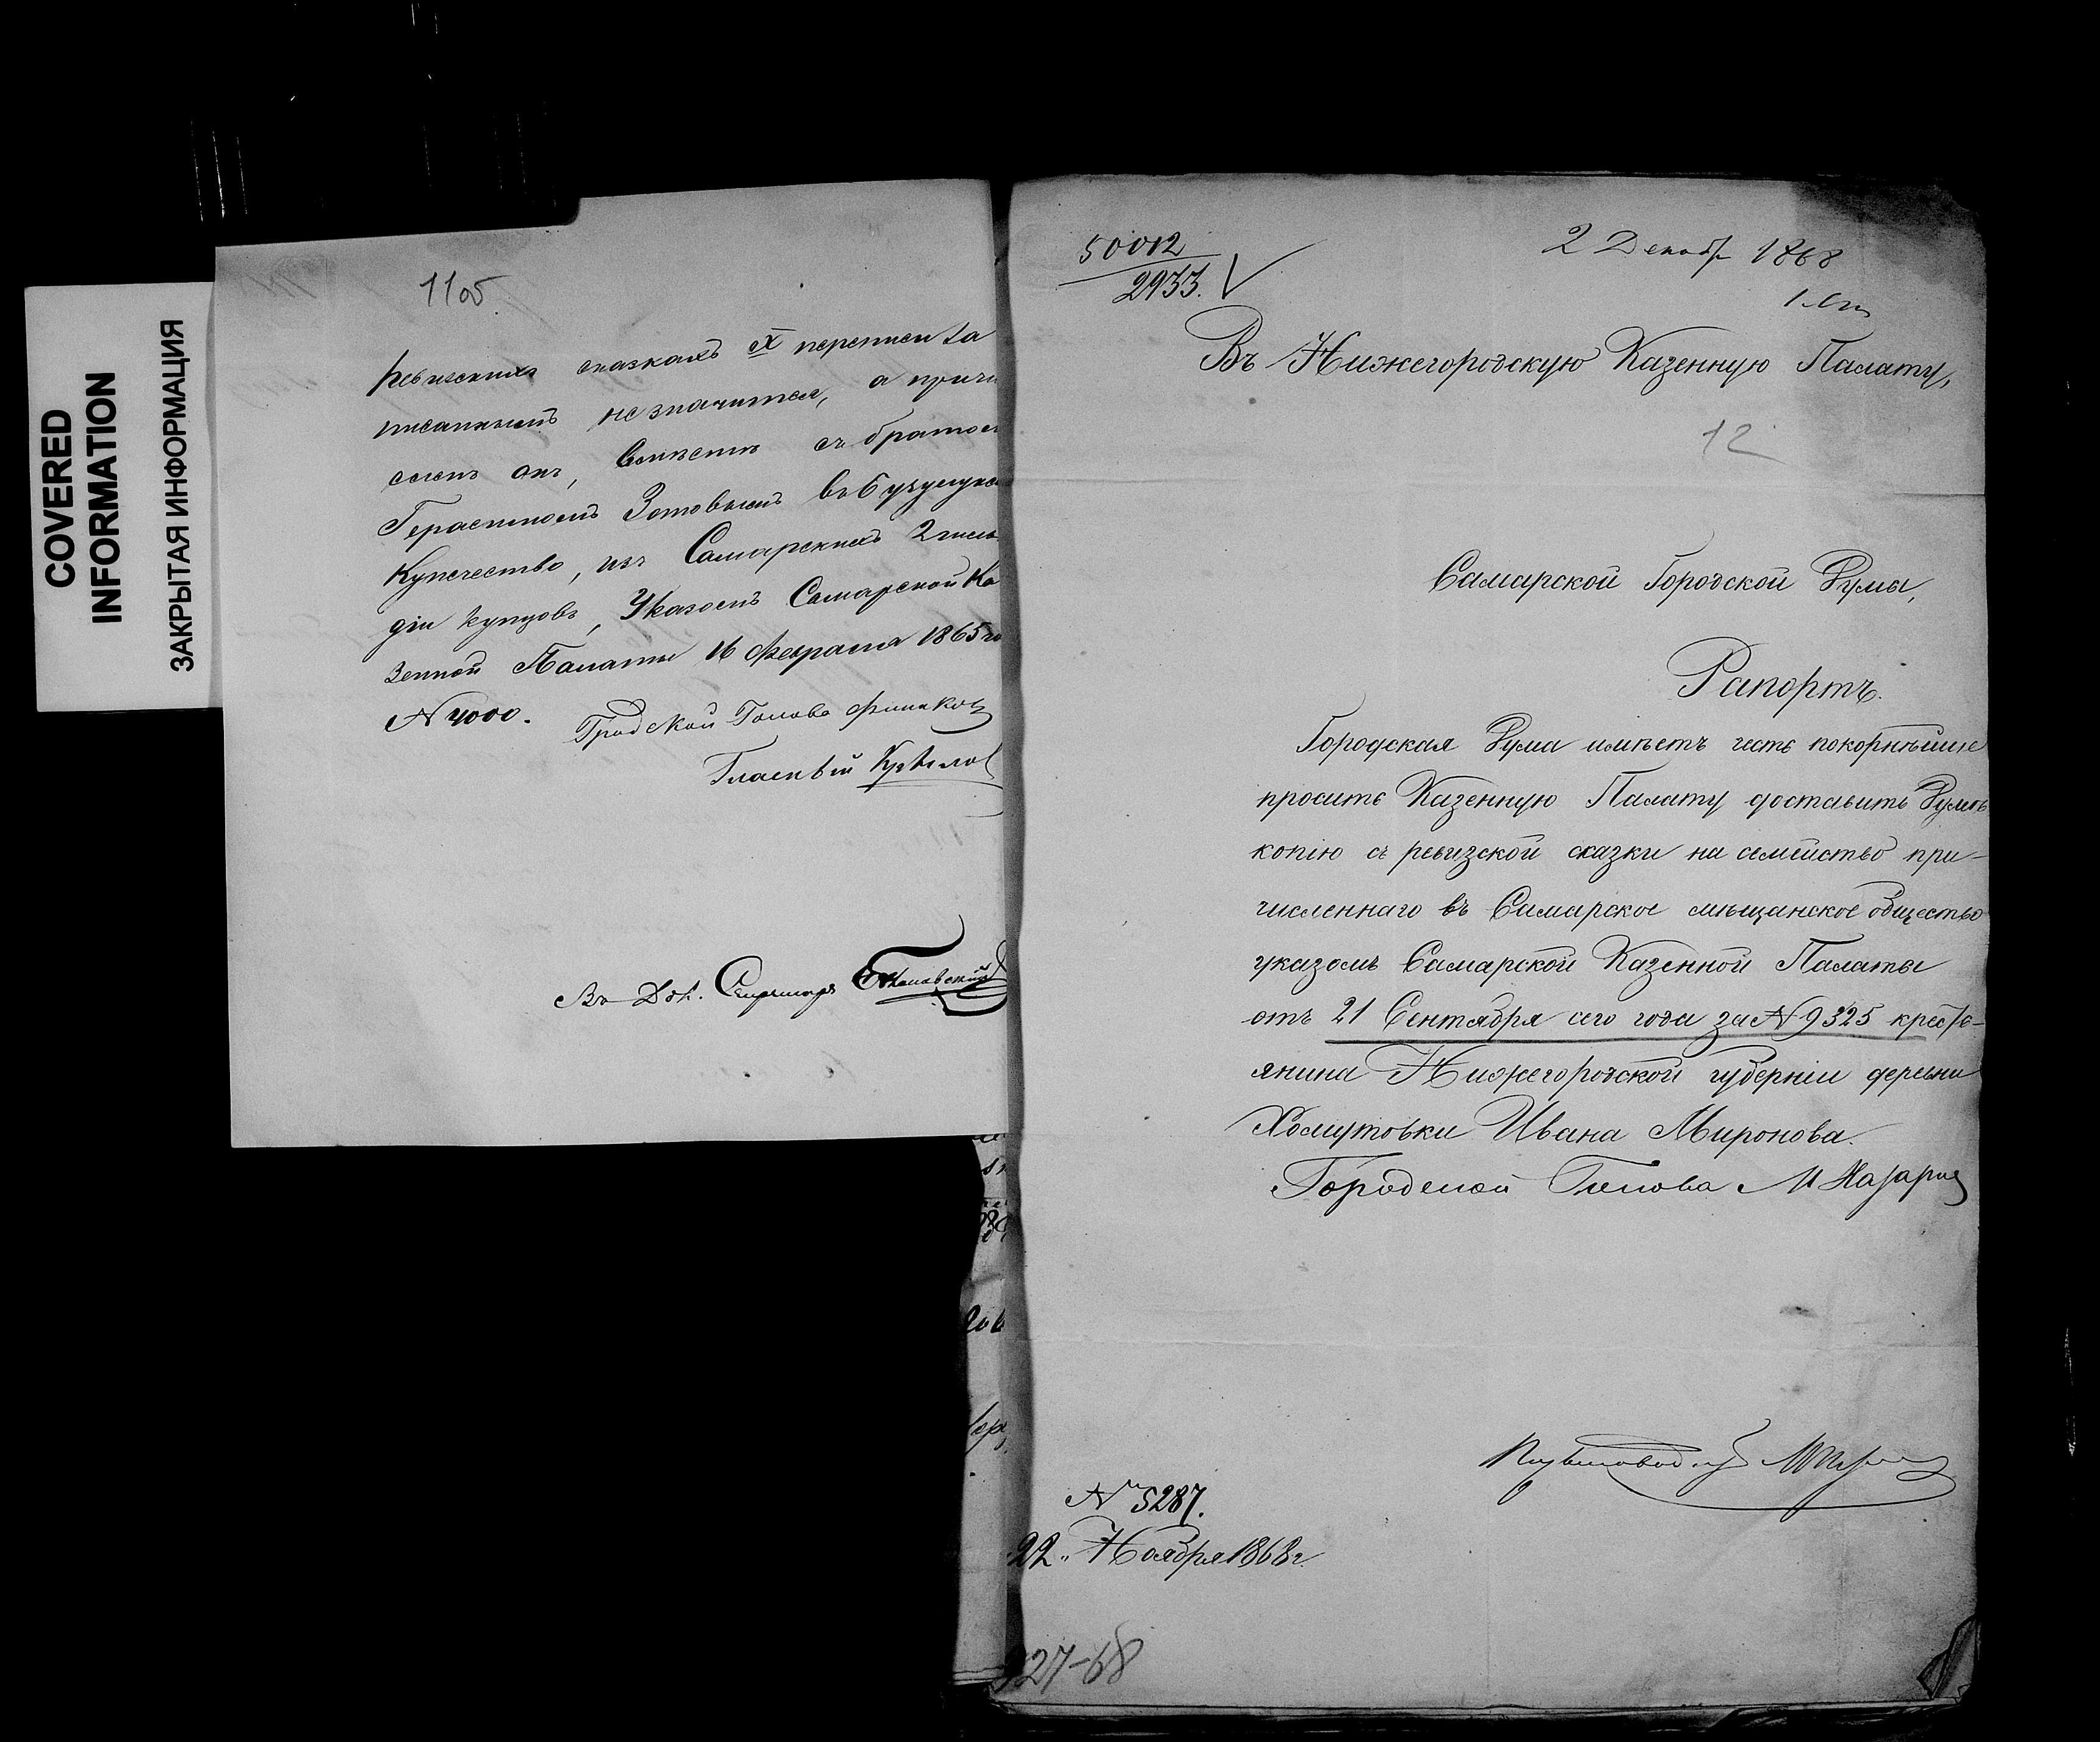 COVERED
INFORMATION
ЗАКРЫТАЯ ИНФОРМАЦИЯ
11об
ревизскихъ сказкахъ X переписи за
писаннымъ не значится, а причи
сленъ онъ, вместе съ братомъ
Герасимомъ Зотовымъ въ Бузулукское
Купечество, изъ Самарскихъ 2 гиль
діи купцовъ, Указомъ Самарской Ка
зенной Палаты 16 Февраля 1865 го
№ 4000.
Градской Голова
Гласный Крылов
Въ Дол. Секретаря
50012
2933.
2 Декабр 1868
Въ Нижегородскую Казенную Палату,
12
Самарской Городской Думы,
Рапортъ.
Городская Дума имѣетъ честь покорнѣйше
просить Казенную Палату доставить Думѣ
копію съ ревизской сказки на семейство при-
численнаго въ Самарское мѣщанское общество
указомъ Самарской Казенной Палаты
отъ 21 Сентября сего года за № 9325 кресть-
янина Нижегородской губерніи деревни
Хомутовки Ивана Миронова.
Городской Голова М Назаров
№ 5287.
22 Ноября 1868 г.
27-68